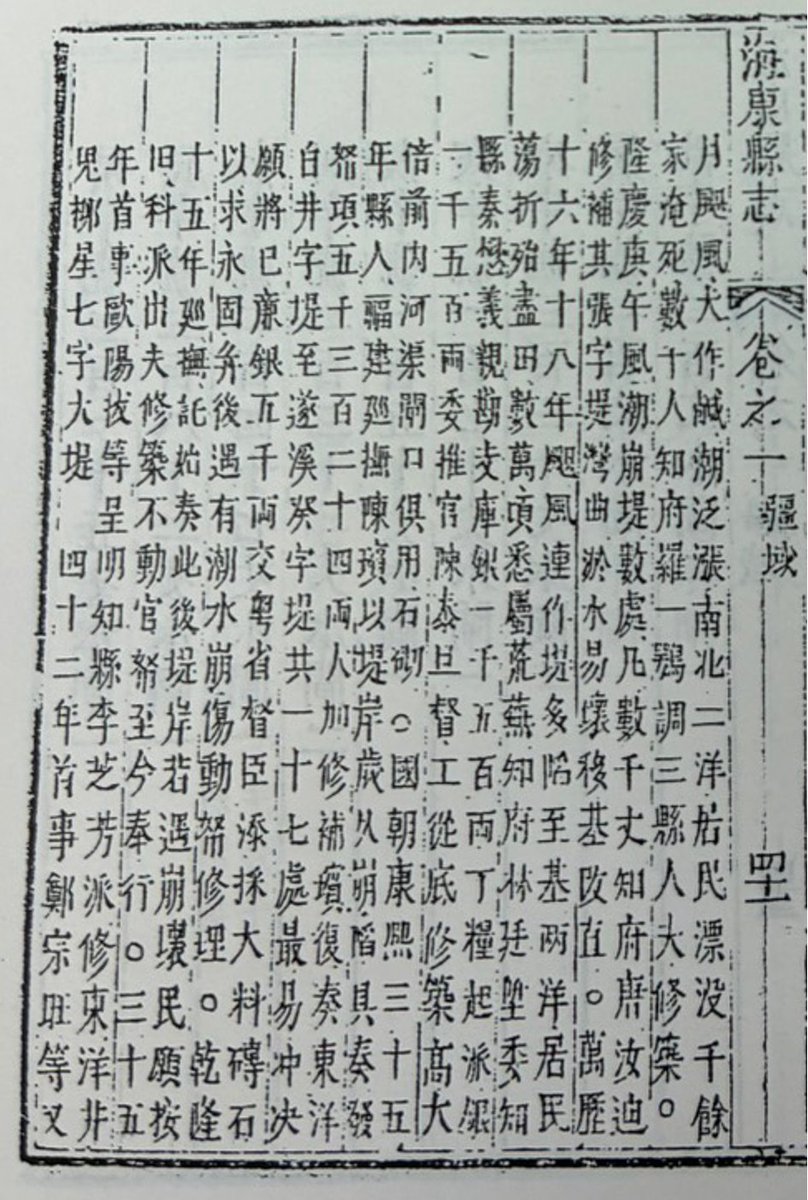 海康縣志 卷之一 疆域 四十一
月颶風大作鹹潮泛漲南北二洋居民漂没千餘
家淹死數十人知府羅一鶚調三縣人夫修築○
隆慶庚午風潮崩堤數處几數千丈知府唐汝迪
修補其張字堤灣曲淤水易壞移基改直○萬歷
十六年十八年颶風連作堤多陷至基兩洋居民
蕩折殆盡田數萬頃悉屬荒蕪知府林廷陞委知
縣秦懋義親勘支庫銀一千五百兩丁糧起派銀
一千五百兩委推官陳泰旦督工從底修築高大
倍前内河渠閘口俱用石砌○國朝康熙三十五
年縣人福建廵撫陳璸以堤岸歲久崩陷具奏發
帑項五千三百二十四両人加修補璸復奏東洋
白井字堤至遂溪癸字堤共一十七處最易冲决
願將已亷銀五千両交粤省督臣添採大料磚石
以求永固弁後遇有潮水崩傷動帑修理○乾隆
十五年廵撫託始奏此後堤岸若遇崩壞民願按
旧科派出夫修築不動官帑至今奉行○三十五
年首事歐陽拔等呈明知縣李芝芳派修東洋井
鬼柳星七字大堤 四十二年首事鄭宗班等又